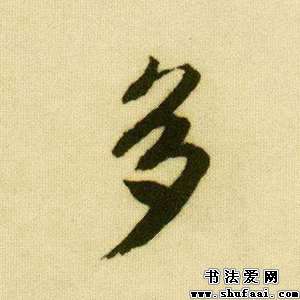 多
书法爱网
www.shufaai.com